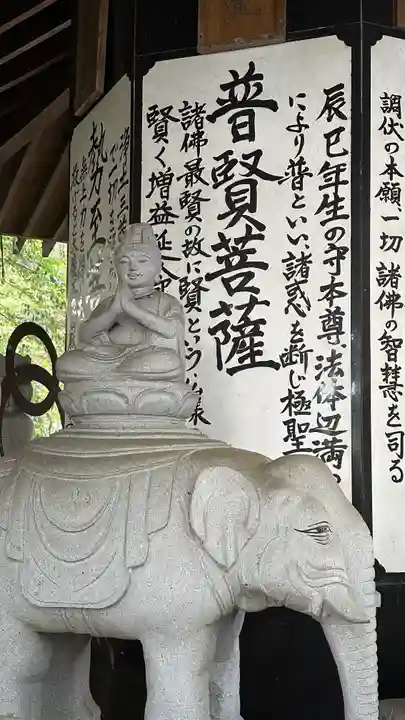 調伏の本願、一切諸佛の智慧を司る
辰巳年生の守本尊、法体辺満
により普といい、諸惑を断じ極聖
普賢菩薩
諸佛最賢の故に賢という
賢く増益延命
浄土三
一切を
勢至